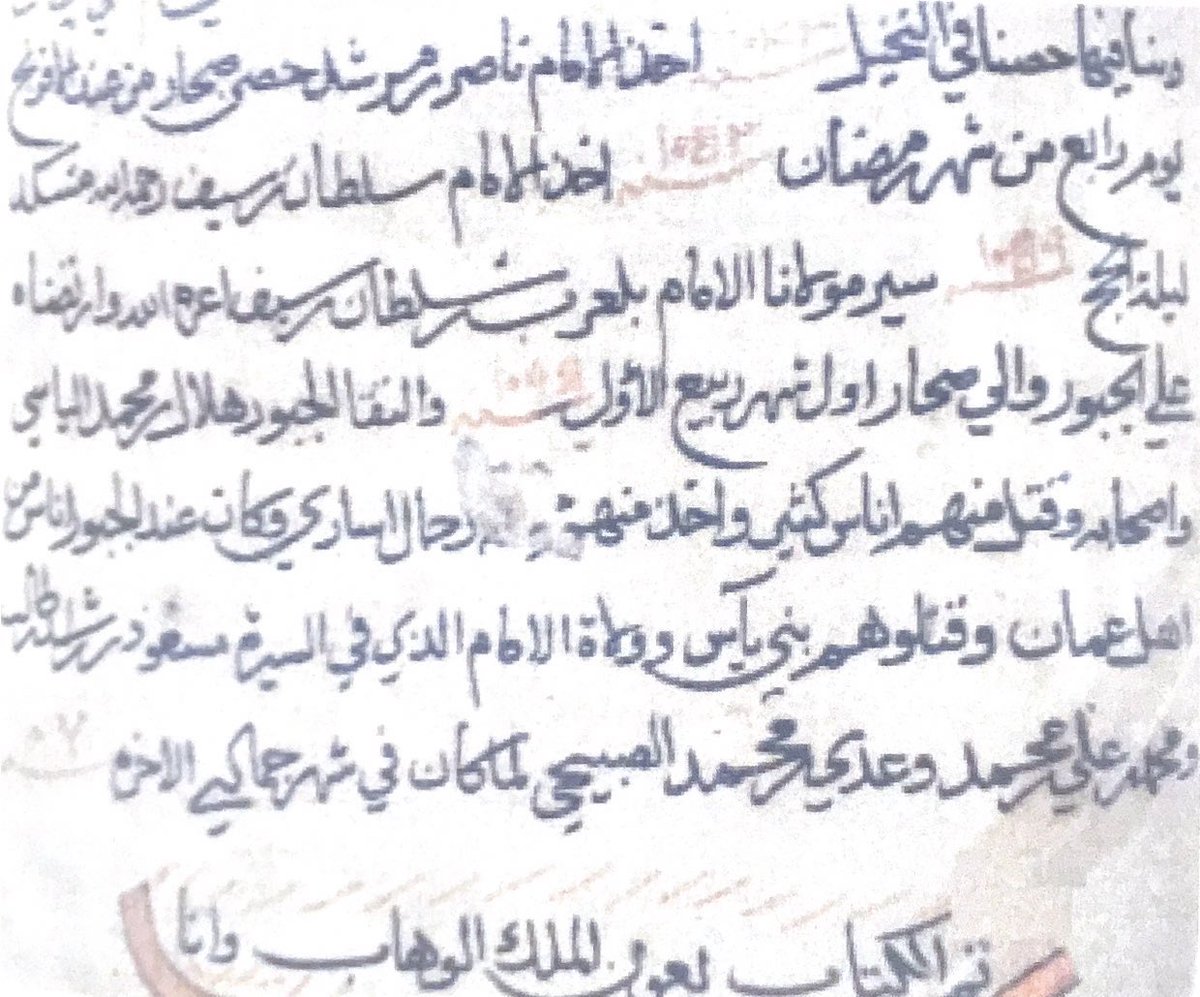 وبنا فيها حصنا في النخيل سنة اخذ الامام ناصر بن مرشد حصن صحار من عند الافرنج
يوم رابع من شهر رمضان سنة ١٠٤٣ اخذ الامام سلطان بن سيف رحمه الله مسكد
ليلة الحج سنة ١٠٥٩ سير مولانا الامام بلعرب بن سلطان بن سيف اعزه الله وارتضاه
علي الجبور والي صحار اول شهر ربيع الاول سنة والتقا الجبور هلال بن محمد
واصحابه وقتل منهم اناس كثير واخذ منهم رجال اساري وكان عند الجبور اناس من
اهل عمان وقتلوهم بني ياس وولاة الامام الذي في السيرة مسعود بن راشد
ومحمد بن علي بن محمد وعدي بن محمد الصبيحي لما كان في شهر جمادي الاخره
تم الكتاب بعون الملك الوهاب وانا